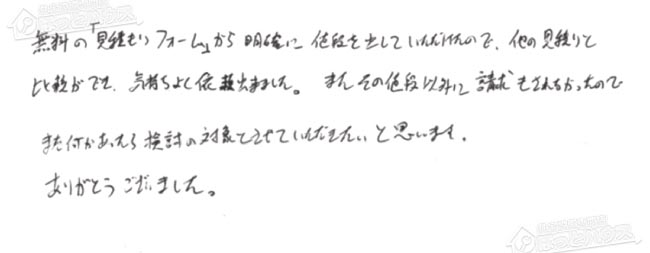 無料の「見積もりフォーム」から明確に値段を出していただけたので、他の見積りと
比較ができ、気持ちよく依頼出来ました。またその値段以外に請求もされなかったので
また何かあったら検討の対象とさせていただきたいと思います。
ありがとうございました。